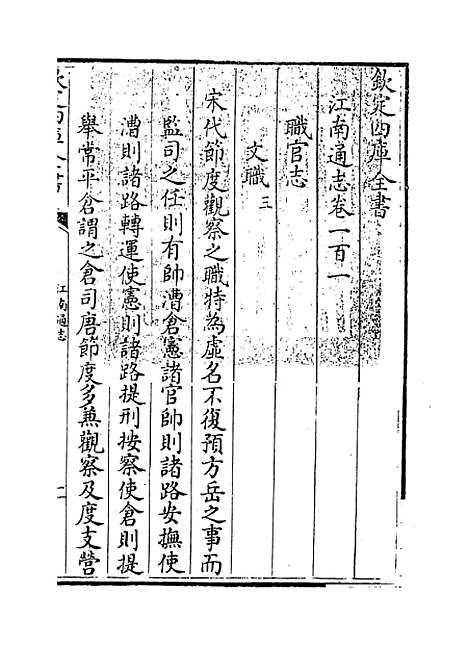 欽定四庫全書
江南通志卷一百一
職官志
文職三
宋代節度觀察之職特為虛名不復預方岳之事而
監司之任則有帥漕倉憲諸官帥則諸路安撫使
漕則諸路轉運使憲則諸路提刑按察使倉則提
舉常平倉謂之倉司唐節度多兼觀察及度支營
欽定四庫全書
江南通志